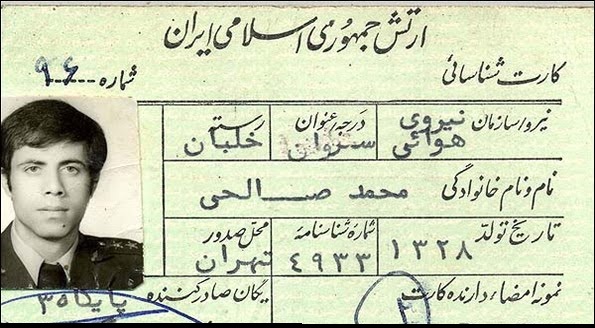 ارتش جمهوری اسلامی ایران
کارت شناسائی
شماره ۹۶
نیرو/سازمان نیروی هوائی
درجه/عنوان ستوان
رسته خلبان
نام و نام خانوادگی محمد صالحی
تاریخ تولد ۱۳۲۸
شمارهٔ شناسنامه ٤٩٣٣
محل صدور تهران
نمونه امضاء دارنده کارت
یگان صادر کننده پایگاه ۳